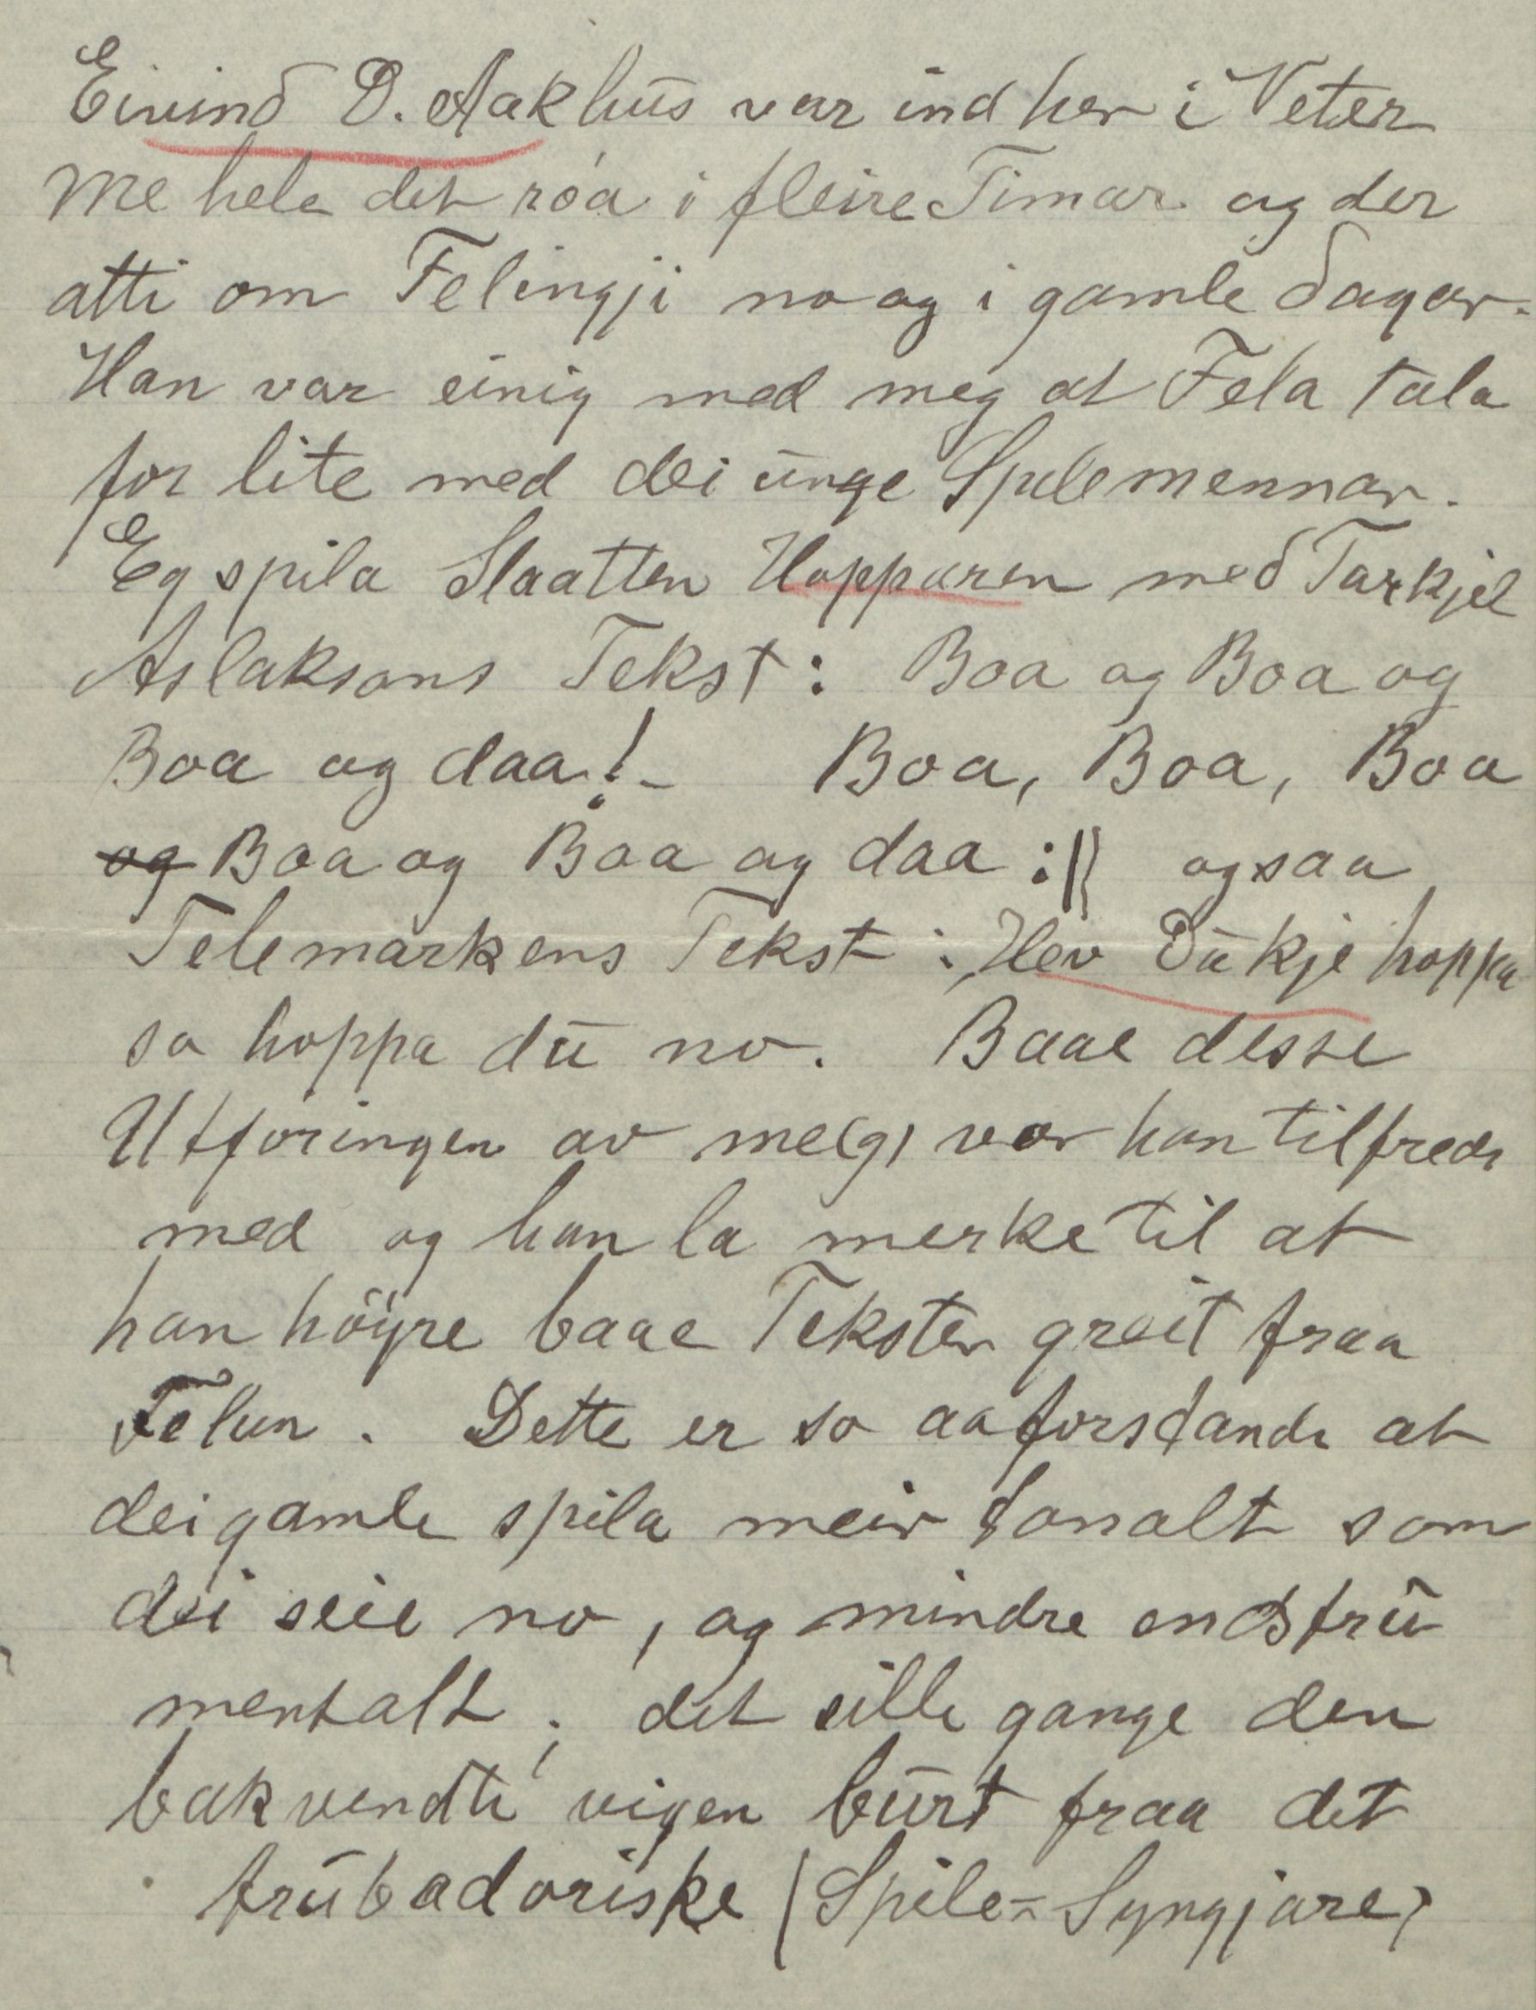 Eivind D. Aakhus var ind her i Veter
me hele det róa i fleire Timar og der
atti om Felingji no og i gamle dagar.
Han var einig med meg at Fela tala
for lite med dei unge Spelemennar.
Eg spila Slaatten Hopparen med Tarkjel
Aslaksons Tekst: Boa og Boa og
Boa og daa! - Boa, Boa, Boa
og Boa og Boa og daa :|| ogsaa
Telemarkens Tekst: Hev Du kje hoppa
so hoppa du no. Baae desse
Utforingen av me(g) var han tilfreds
med og han la merke til at
han höyre baae Tekster greit fraa
Felun. Dette er so aa forstande at
dei gamle spila meir tonalt som
dei seie no, og mindre enstru
mentalt; det sille gange den
bakvendte vigen burt fraa det
trubadoriske (Spile-Syngjare)